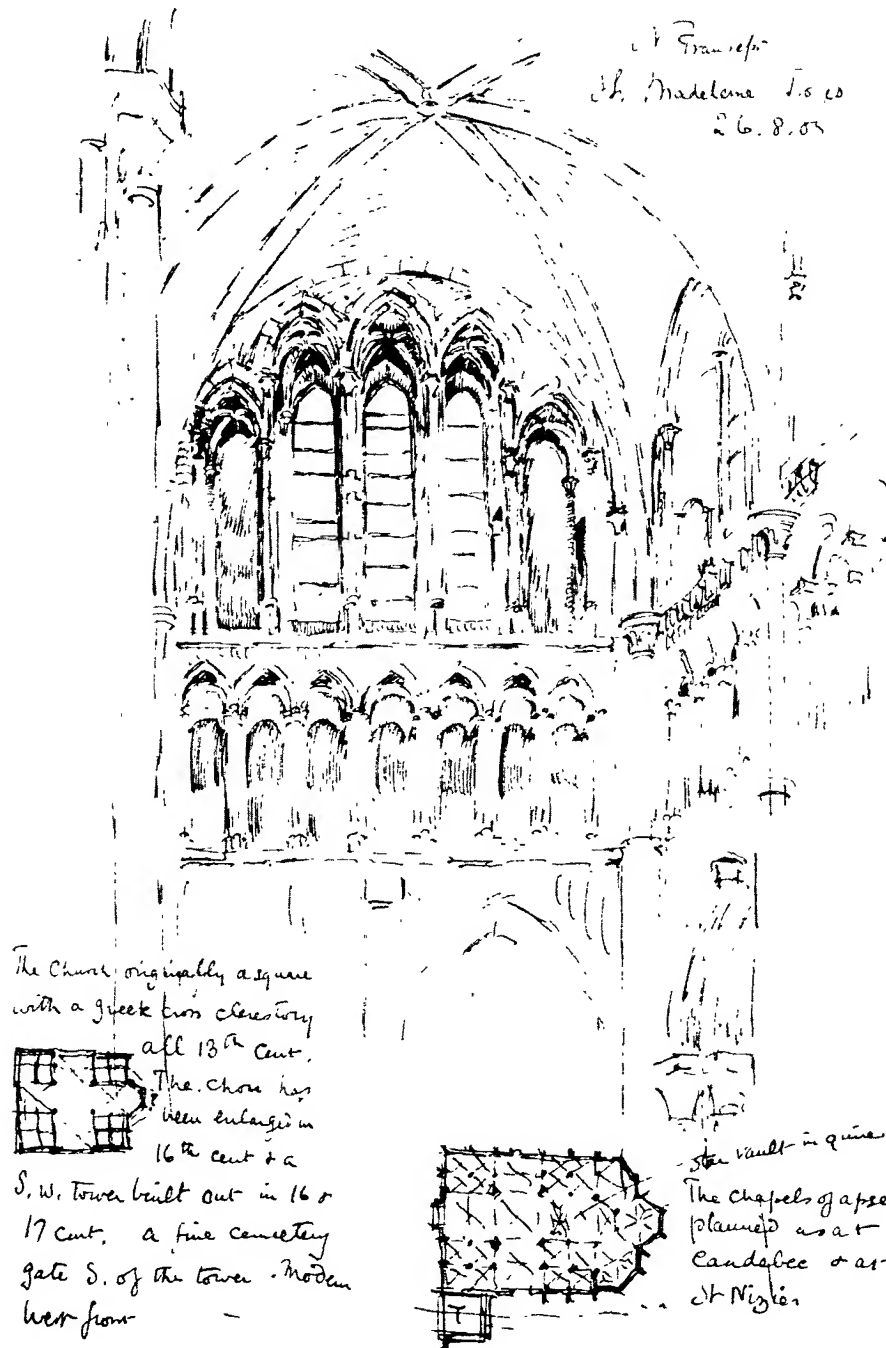 N Transept
St. Madeleine Troyes
26.8.03
The Church originally a square
with a greek cross clerestory
all 13th Cent.
The choir has
been enlarged in
16th cent & a
S.W. Tower built out in 16 &
17 cent. a fine cemetery
gate S. of the tower. Modern
West front
T
star vault in quire
The chapels of apse
planned as at
Caudebec & at
St Nizier